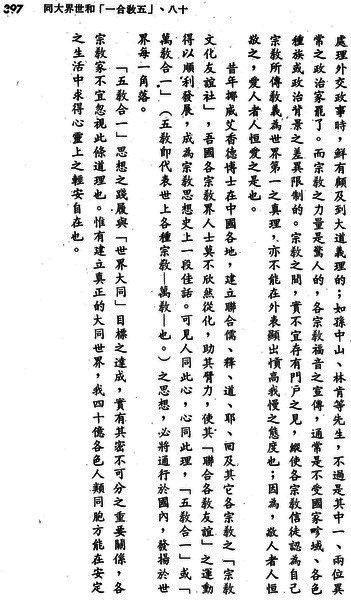 十八、「五教合一」和世界大同
397
處理外交政事時，鮮有顧及到大道義理的；如孫中山、林肯等先生，不過是其中一、兩位異
常之政治家罷了。而宗教之力量是驚人的，各宗教福音之宣傳，通常是不受國家畛域、各色
種族或政治背景之差異限制的。宗教之間，實不宜存有門戶之見，縱使各宗教信徒認為自己
宗教所傳教義為世界第一之真理，亦不能在外表顯出憤高我慢之態度也；因為，敬人者人恒
敬之，愛人者人恒愛之是也。
昔年挪威艾香德博士在中國各地，建立聯合儒、釋、道、耶、回及其它各宗教之「宗教
文化友誼社」，吾國各宗教界人士莫不欣然從化，助其臂力，使其「聯合各教友誼」之運動
得以順利發展，成為宗教思想史上一段佳話。可見人同此心，心同此理，「五教合一」或「
萬教合一」（五教即代表世上各種宗教—萬教—也。）之思想，必將通行於國內，發揚於世
界每一角落。
「五教合一」思想之踐履與「世界大同」目標之達成，實有其密不可分之重要關係，各
宗教家不宜忽視此條道理也。惟有建立真正的大同世界，我四十億各色人類同胞方能在安定
之生活中求得心靈上之輕安自在也。